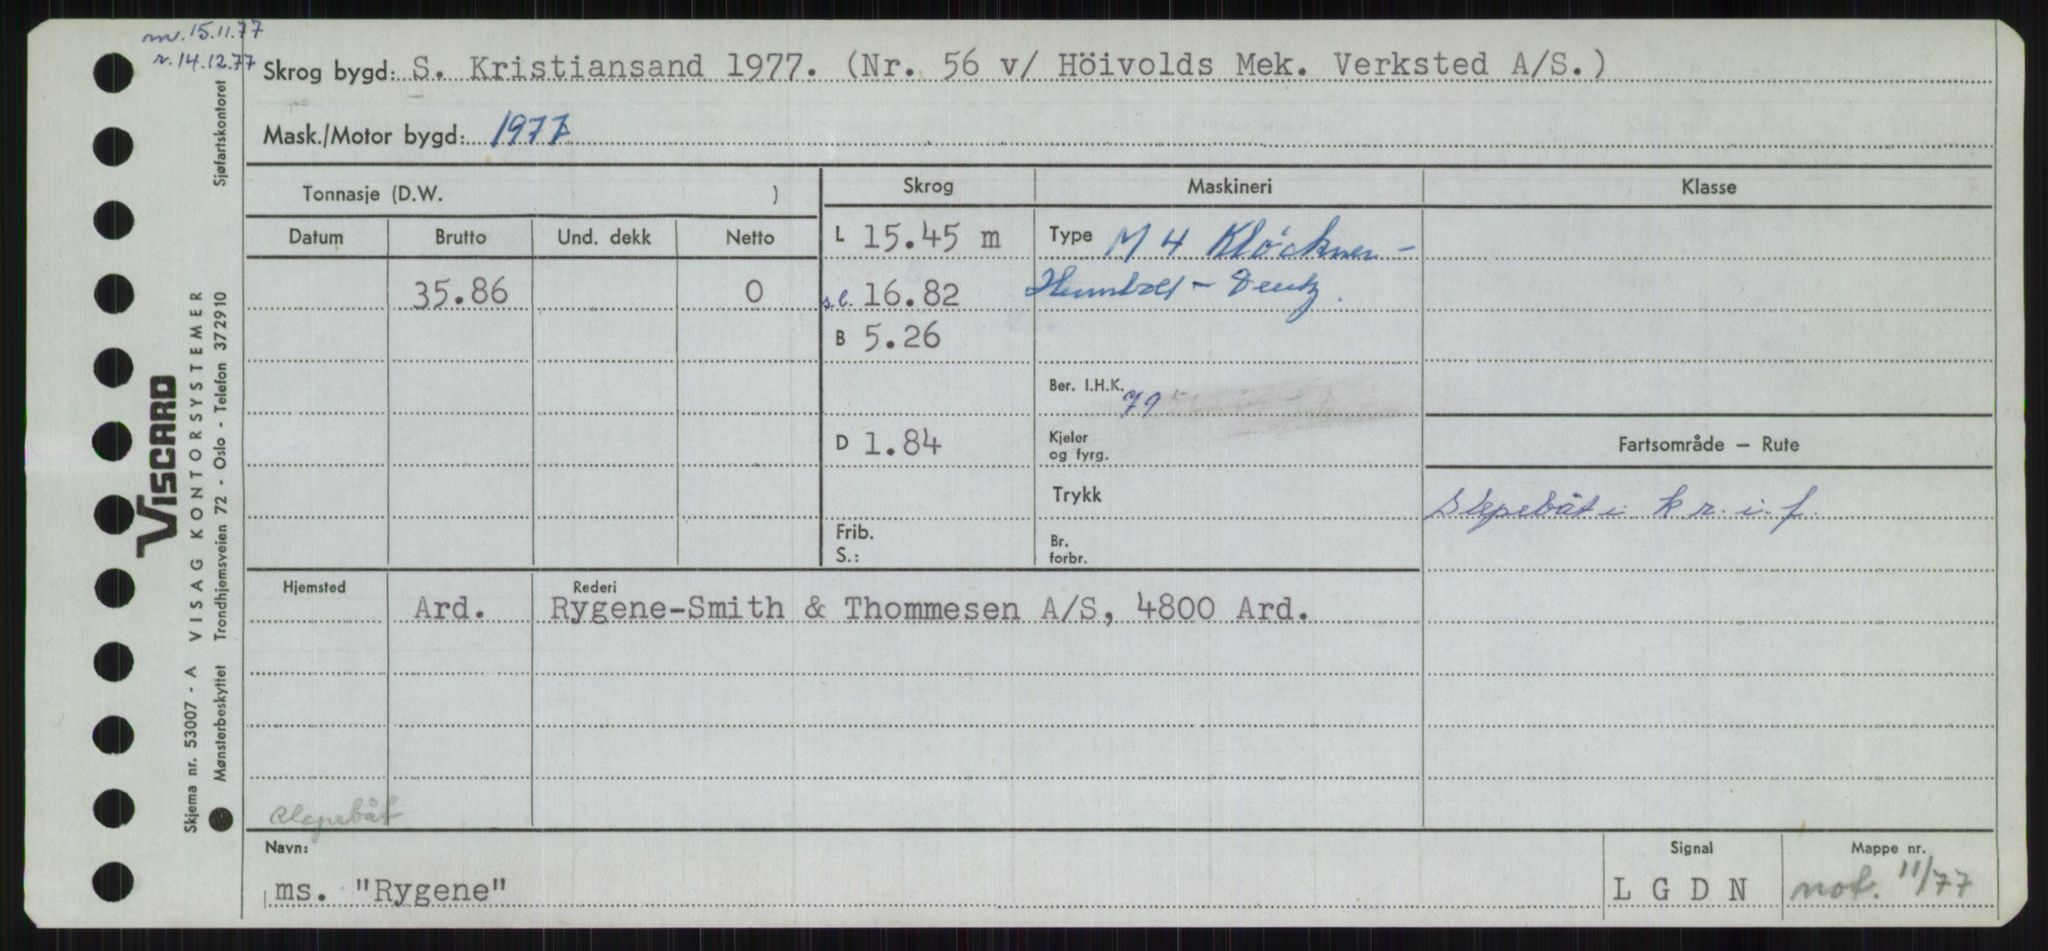 m. 15.11.77
r. 14.12.77
Skrog bygd: S. Kristiansand 1977. (Nr. 56 v/ Höivolds Mek. Verksted A/S.)
Mask./Motor bygd: 1977
Tonnasje (D.W. )
Skrog Maskineri Klasse
Datum Brutto Und. dekk Netto
L 15.45 m Type M 4 Klöckner-
35.86 0 s.l. 16.82 Humbolt - Deutz.
B 5.26
Ber. I.H.K. 79
D 1.84
Kjeler
og fyrg.
Fartsområde — Rute
Trykk
Slepebåt i kr. i. f.
Frib.
S.:
Br.
forbr.
Hjemsted Rederi
Ard. Rygene-Smith & Thommesen A/S, 4800 Ard.
slepebåt
Navn: Signal Mappe nr.
ms. "Rygene" LGDN not. 11/77
VISCARD
Skjema nr. 53007 - A VISAG KONTORSYSTEMER
Mønsterbeskyttet Trondhjemsveien 72 - Oslo - Telefon 372910 Sjøfartskontoret